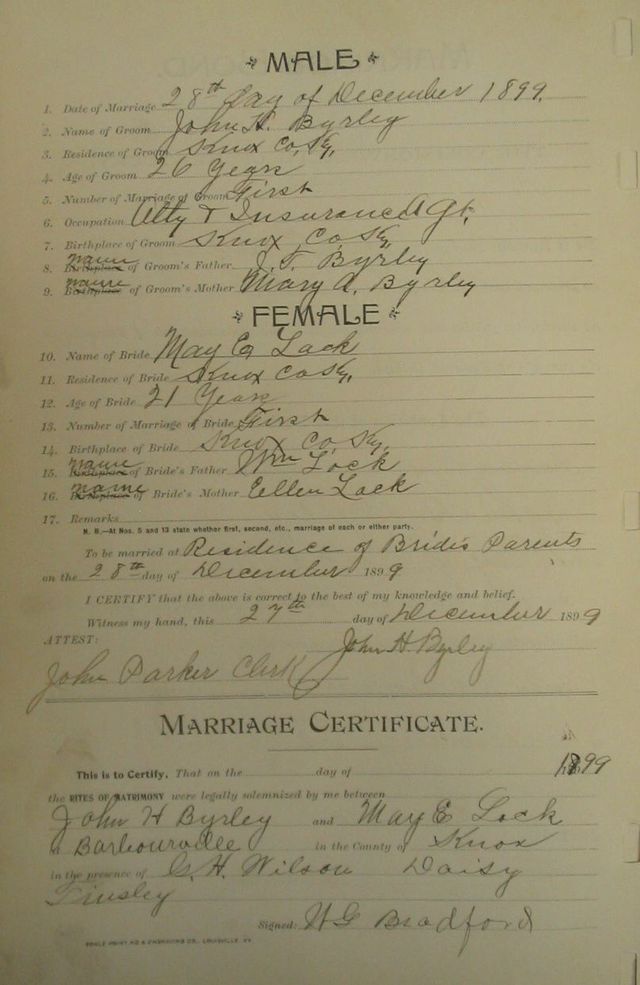 MALE
1. Date of Marriage 28th Day of December 1899.
2. Name of Groom John H. Byrley
3. Residence of Groom Knox Co, Ky,
4. Age of Groom 26 Years
5. Number of Marriage of Groom First
6. Occupation Atty & Insurance Agt.
7. Birthplace of Groom Knox, Co, Ky,
8. Birthplace name of Groom's Father J. T. Byrley
9. Birthplace name of Groom's Mother Mary A. Byrley
FEMALE
10. Name of Bride May E Lock
11. Residence of Bride Knox Co Ky,
12. Age of Bride 21 Years
13. Number of Marriage of Bride First
14. Birthplace of Bride Knox Co, Ky,
15. Birthplace name of Bride's Father Wm Lock
16. Birthplace name of Bride's Mother Ellen Lock
17. Remarks
N. B.—At Nos. 5 and 13 state whether first, second, etc., marriage of each or either party.
To be married at Residence of Bride's Parents
on the 28th day of December 1899
I CERTIFY that the above is correct to the best of my knowledge and belief.
Witness my hand, this 27th day of December 1899
ATTEST: John H Byrley
John Parker Clerk
MARRIAGE CERTIFICATE.
This is to Certify, That on the day of 1899
the RITES OF MATRIMONY were legally solemnized by me between
John H Byrley and May E Lock
Barbourville in the County of Knox
in the presence of G. H. Wilson Daisy
Tinsley
Signed: W G Bradford